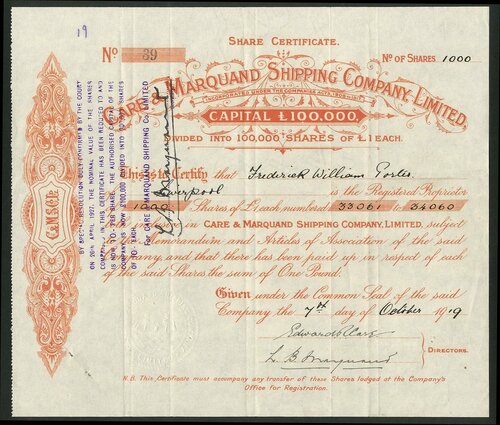 19
SHARE CERTIFICATE.
No 39
No OF SHARES 1000
CARE & MARQUAND SHIPPING COMPANY, LIMITED.
INCORPORATED UNDER THE COMPANIES ACTS
CAPITAL £100,000
DIVIDED INTO 100,000 SHARES OF £1 EACH.
This is to Certify that Frederick William Porter
Liverpool is the Registered Proprietor
1000 Shares of £1 each numbered 33061 to 34060
in CARE & MARQUAND SHIPPING COMPANY, LIMITED, subject
Memorandum and Articles of Association of the said
Company, and that there has been paid up in respect of each
of the said Shares the sum of One Pound.
Given under the Common Seal of the said
Company the 7th day of October 1919
L. B. Marquand
DIRECTORS.
N.B. This Certificate must accompany any transfer of these Shares lodged at the Company's
Office for Registration.
C&MSCL
BY SPECIAL RESOLUTION DULY CONFIRMED BY THE COURT
ON 26TH APRIL 1922, THE NOMINAL VALUE OF THE SHARES
COMPRISED IN THIS CERTIFICATE HAS BEEN REDUCED TO AND
IS NOW
COMPANY IS NOW
OF
EACH.
For CARE & MARQUAND SHIPPING Co. LIMITED